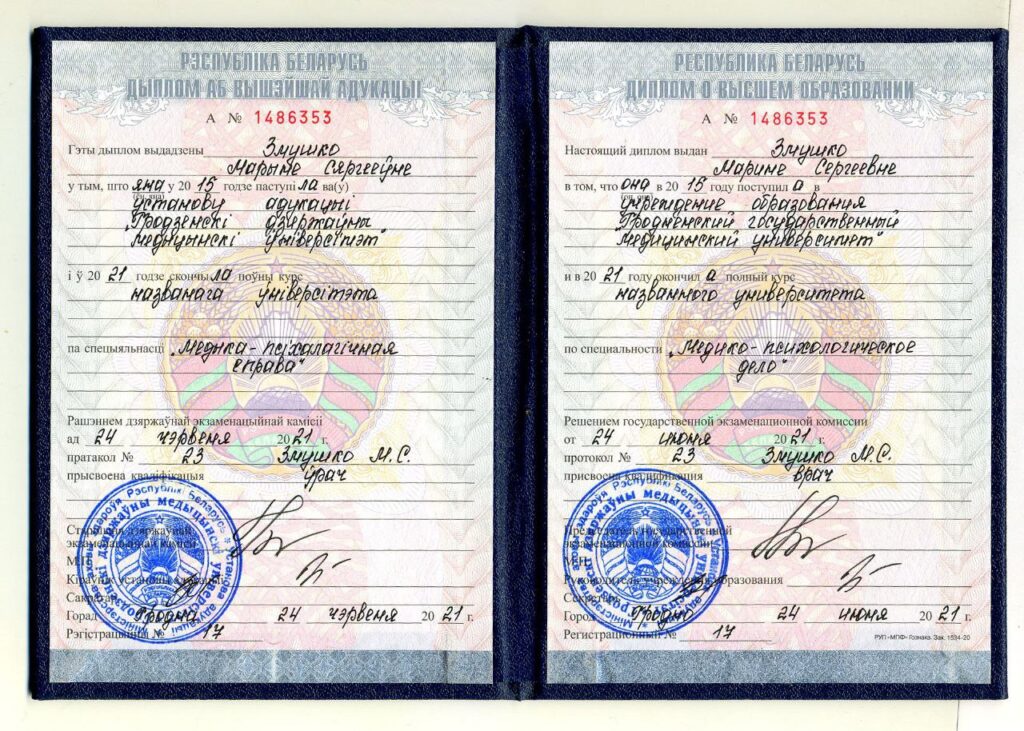 РЭСПУБЛІКА БЕЛАРУСЬ
ДЫПЛОМ АБ ВЫШЭЙШАЙ АДУКАЦЫІ
А № 1486353
Гэты дыплом выдадзены Змушко
Марыне Сяргееўне
у тым, што яна у 20 15 годзе паступі ла ва(у)
установу адукацыі
"Гродзенскі дзяржаўны
медыцынскі ўніверсітэт"
і ў 20 21 годзе скончы ла поўны курс
названага ўніверсітэта
па спецыяльнасці "Медыка-псіхалагічная
справа"
Рашэннем дзяржаўнай экзаменацыйнай камісіі
ад 24 чэрвеня 20 21 г.
пратакол № 23 Змушко М.С.
прысвоена кваліфікацыя ўрач
Старшыня дзяржаўнай
экзаменацыйнай камісіі
М.П.
Кіраўнік установы адукацыі
Сакратар
Горад Гродна 24 чэрвеня 20 21 г.
Рэгістрацыйны № 17
РЕСПУБЛИКА БЕЛАРУСЬ
ДИПЛОМ О ВЫСШЕМ ОБРАЗОВАНИИ
А № 1486353
Настоящий диплом выдан Змушко
Марине Сергеевне
в том, что она в 20 15 году поступил а в
учреждение образования
"Гродненский государственный
медицинский университет"
и в 20 21 году окончил а полный курс
названного университета
по специальности "Медико-психологическое
дело"
Решением государственной экзаменационной комиссии
от 24 июня 20 21 г.
протокол № 23 Змушко М.С.
присвоена квалификация врач
Председатель государственной
экзаменационной комиссии
М.П.
Руководитель учреждения образования
Секретарь
Город Гродно 24 июня 20 21 г.
Регистрационный № 17
РУП «МПФ» Гознака. Зак. 1534-20